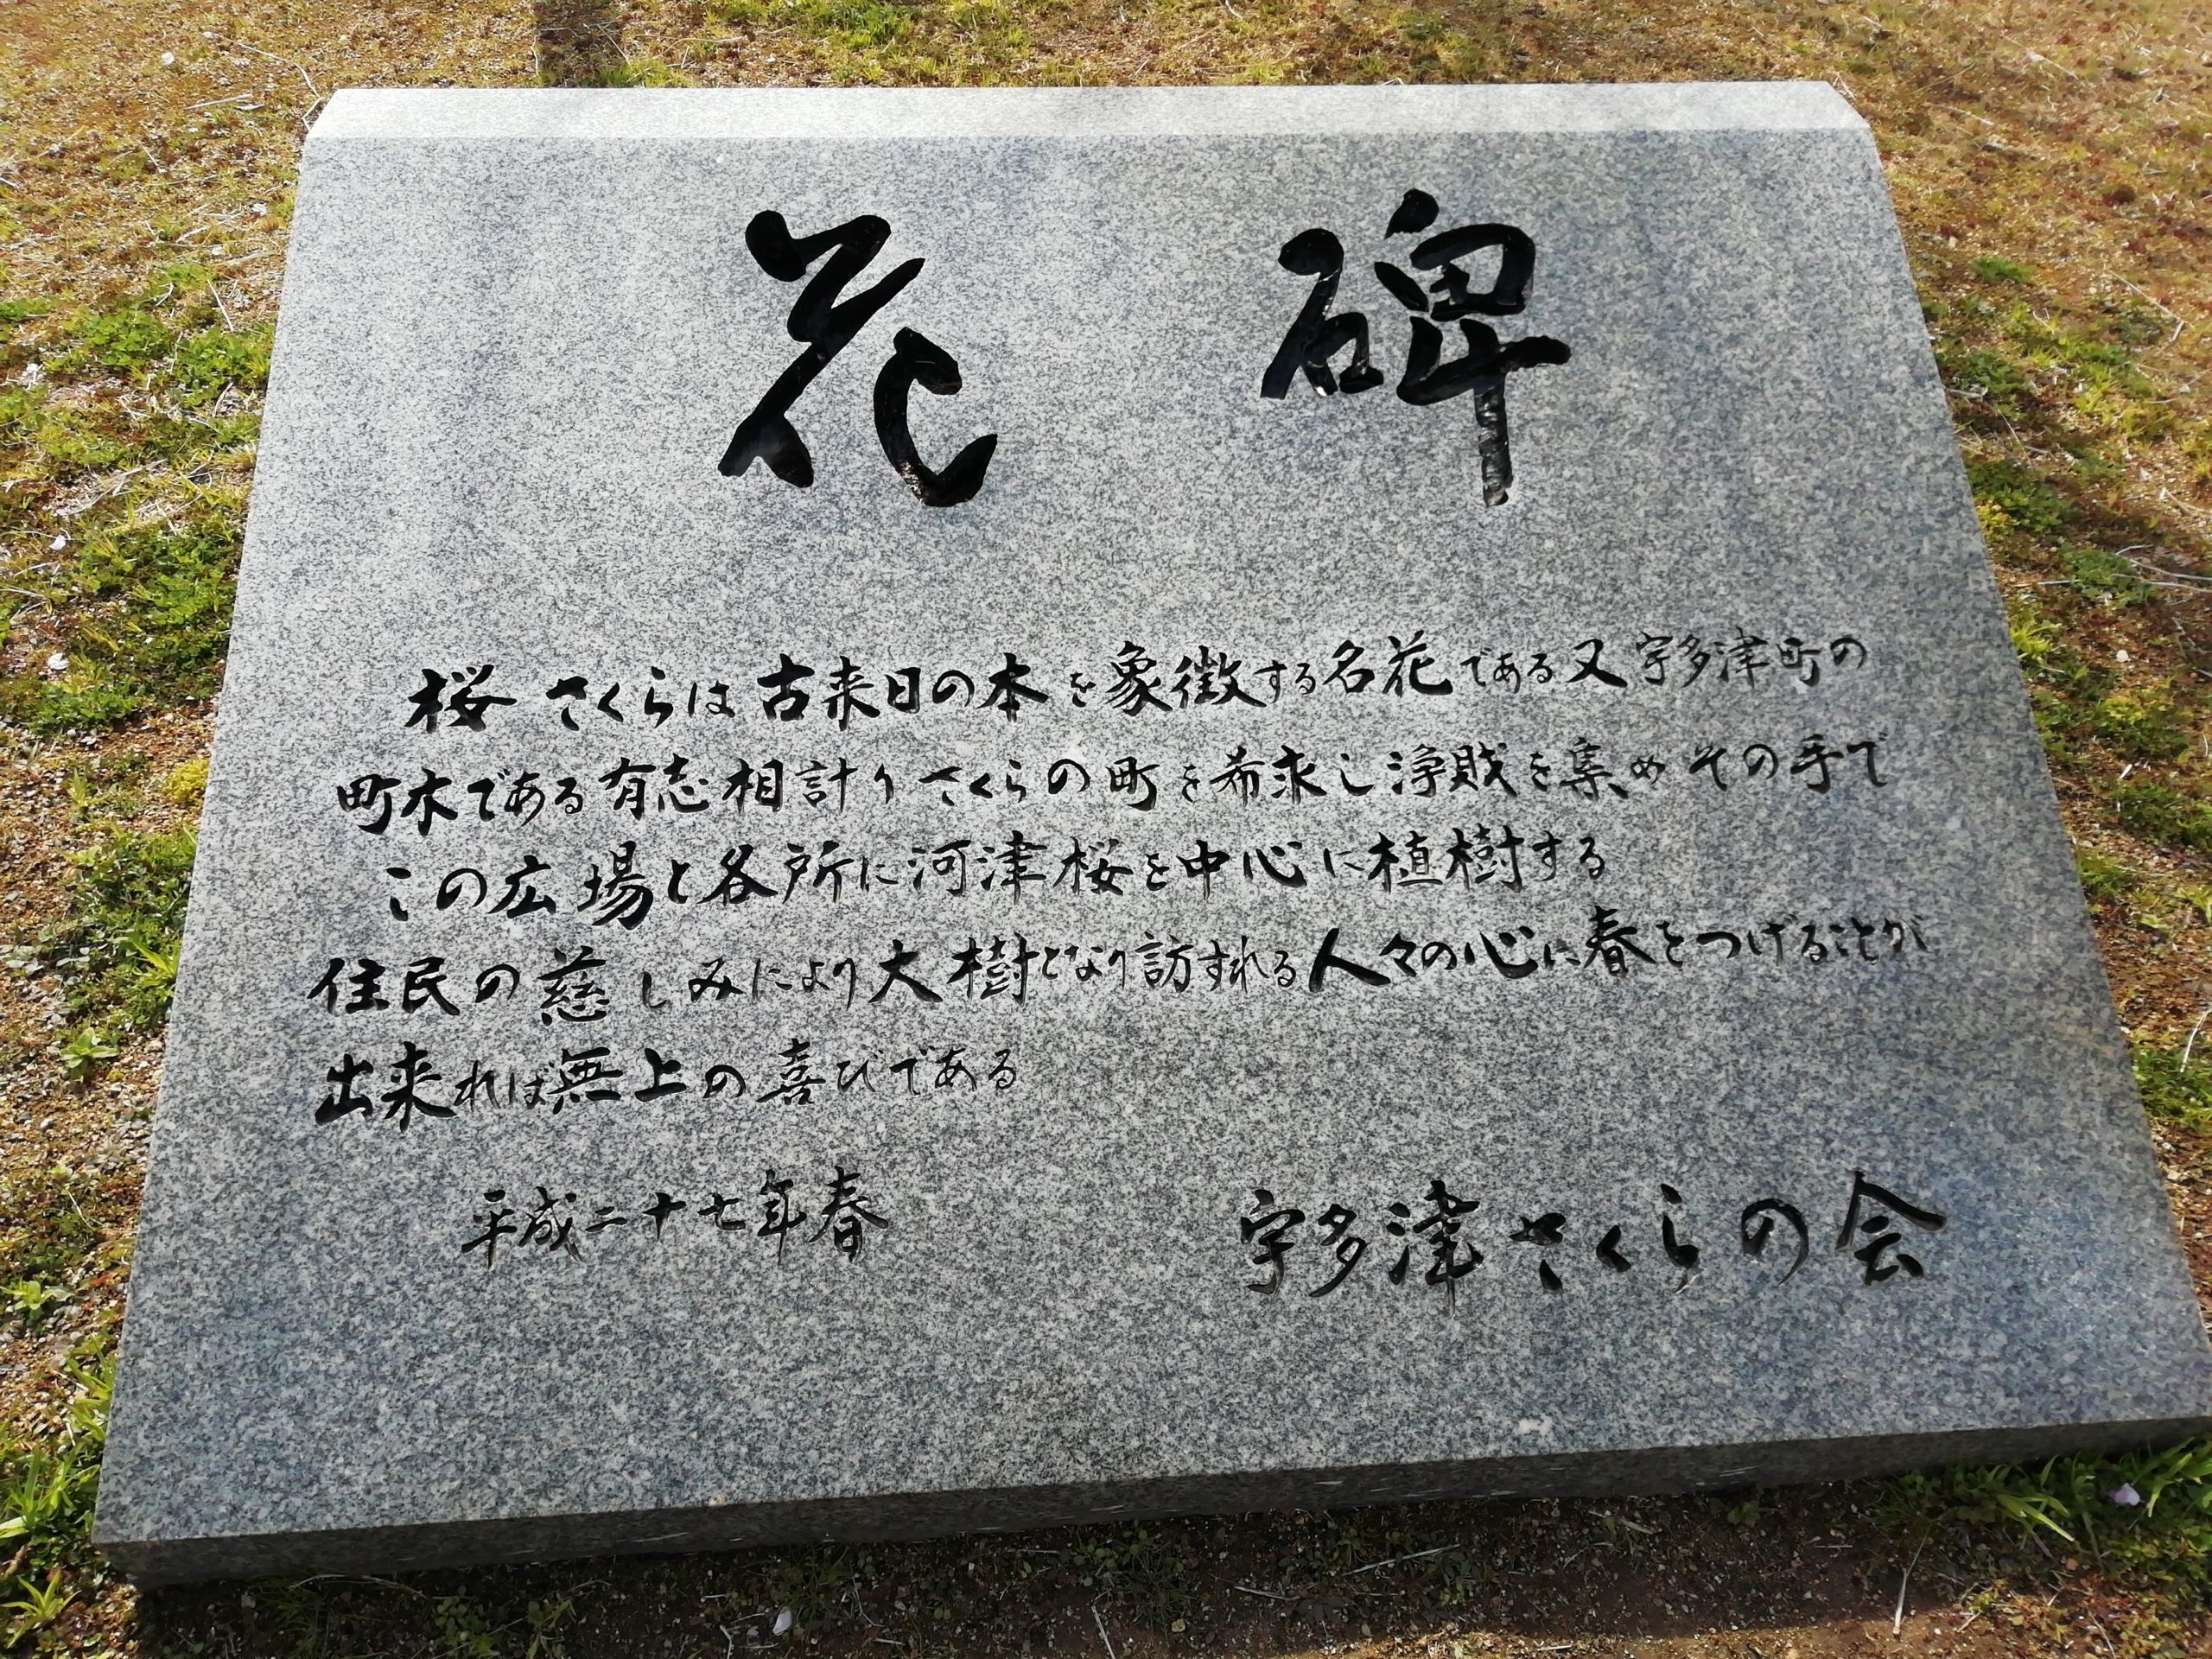 花 碑
桜 さくらは古来日の本を象徴する名花である又宇多津町の
町木である有志相計りさくらの町を希求し浄財を集めその手で
この広場と各所に河津桜を中心に植樹する
住民の慈しみにより大樹となり訪ずれる人々の心に春をつげることが
出来れば無上の喜びである
平成二十七年春 宇多津さくらの会